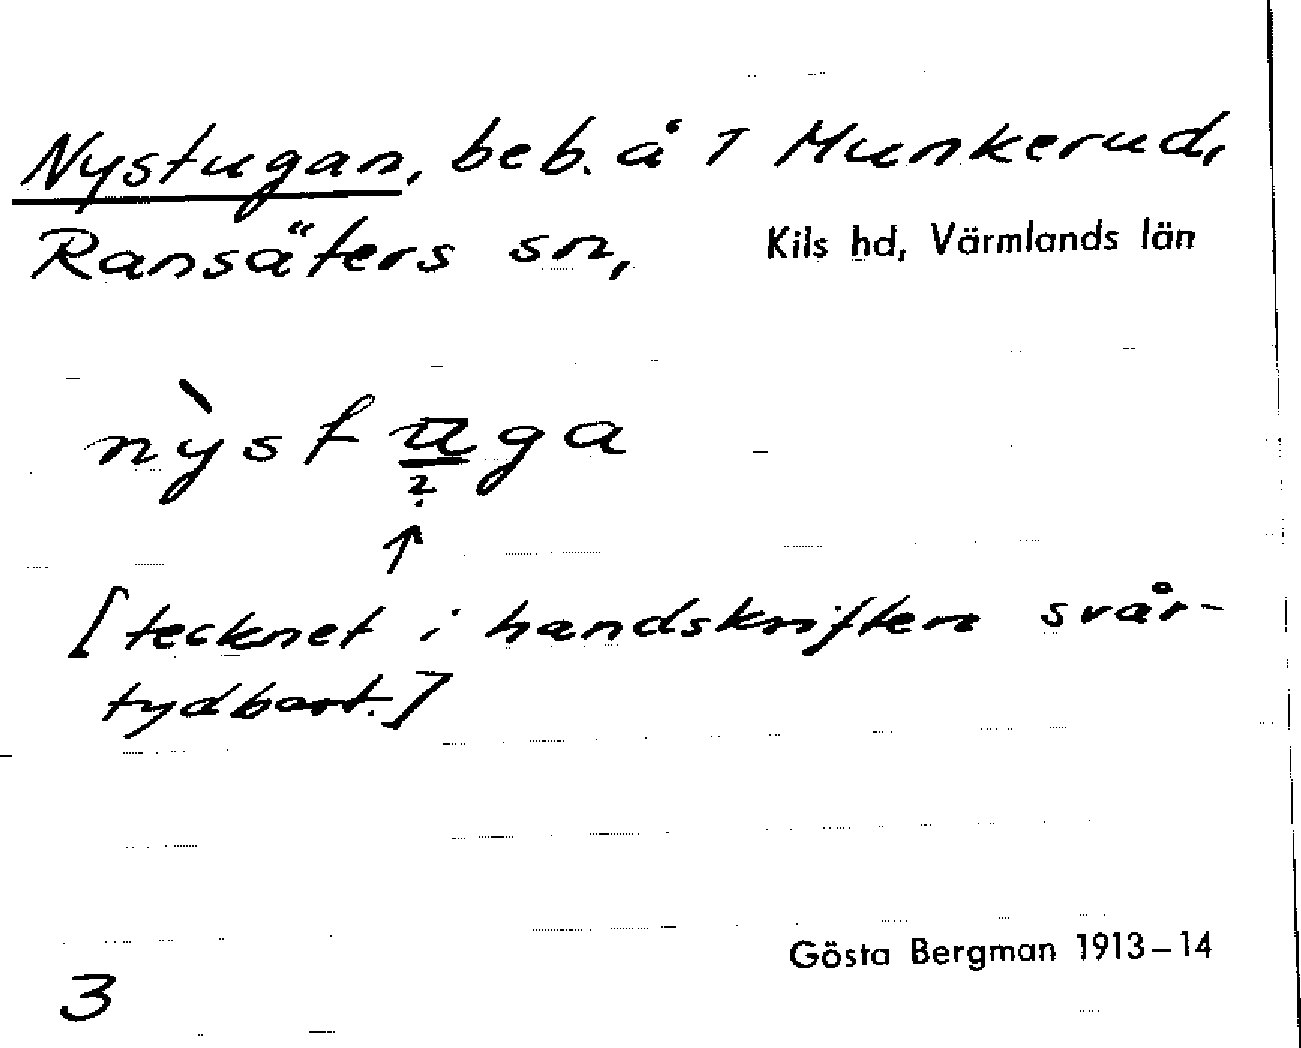 Nystugan, beb. å 1 Munkerud,
Ransäters sn, Kils hd, Värmlands län
nỳstuga
?
↑
[tecknet i handskriften svår-
tydbart.]
Gösta Bergman 1913–14
3